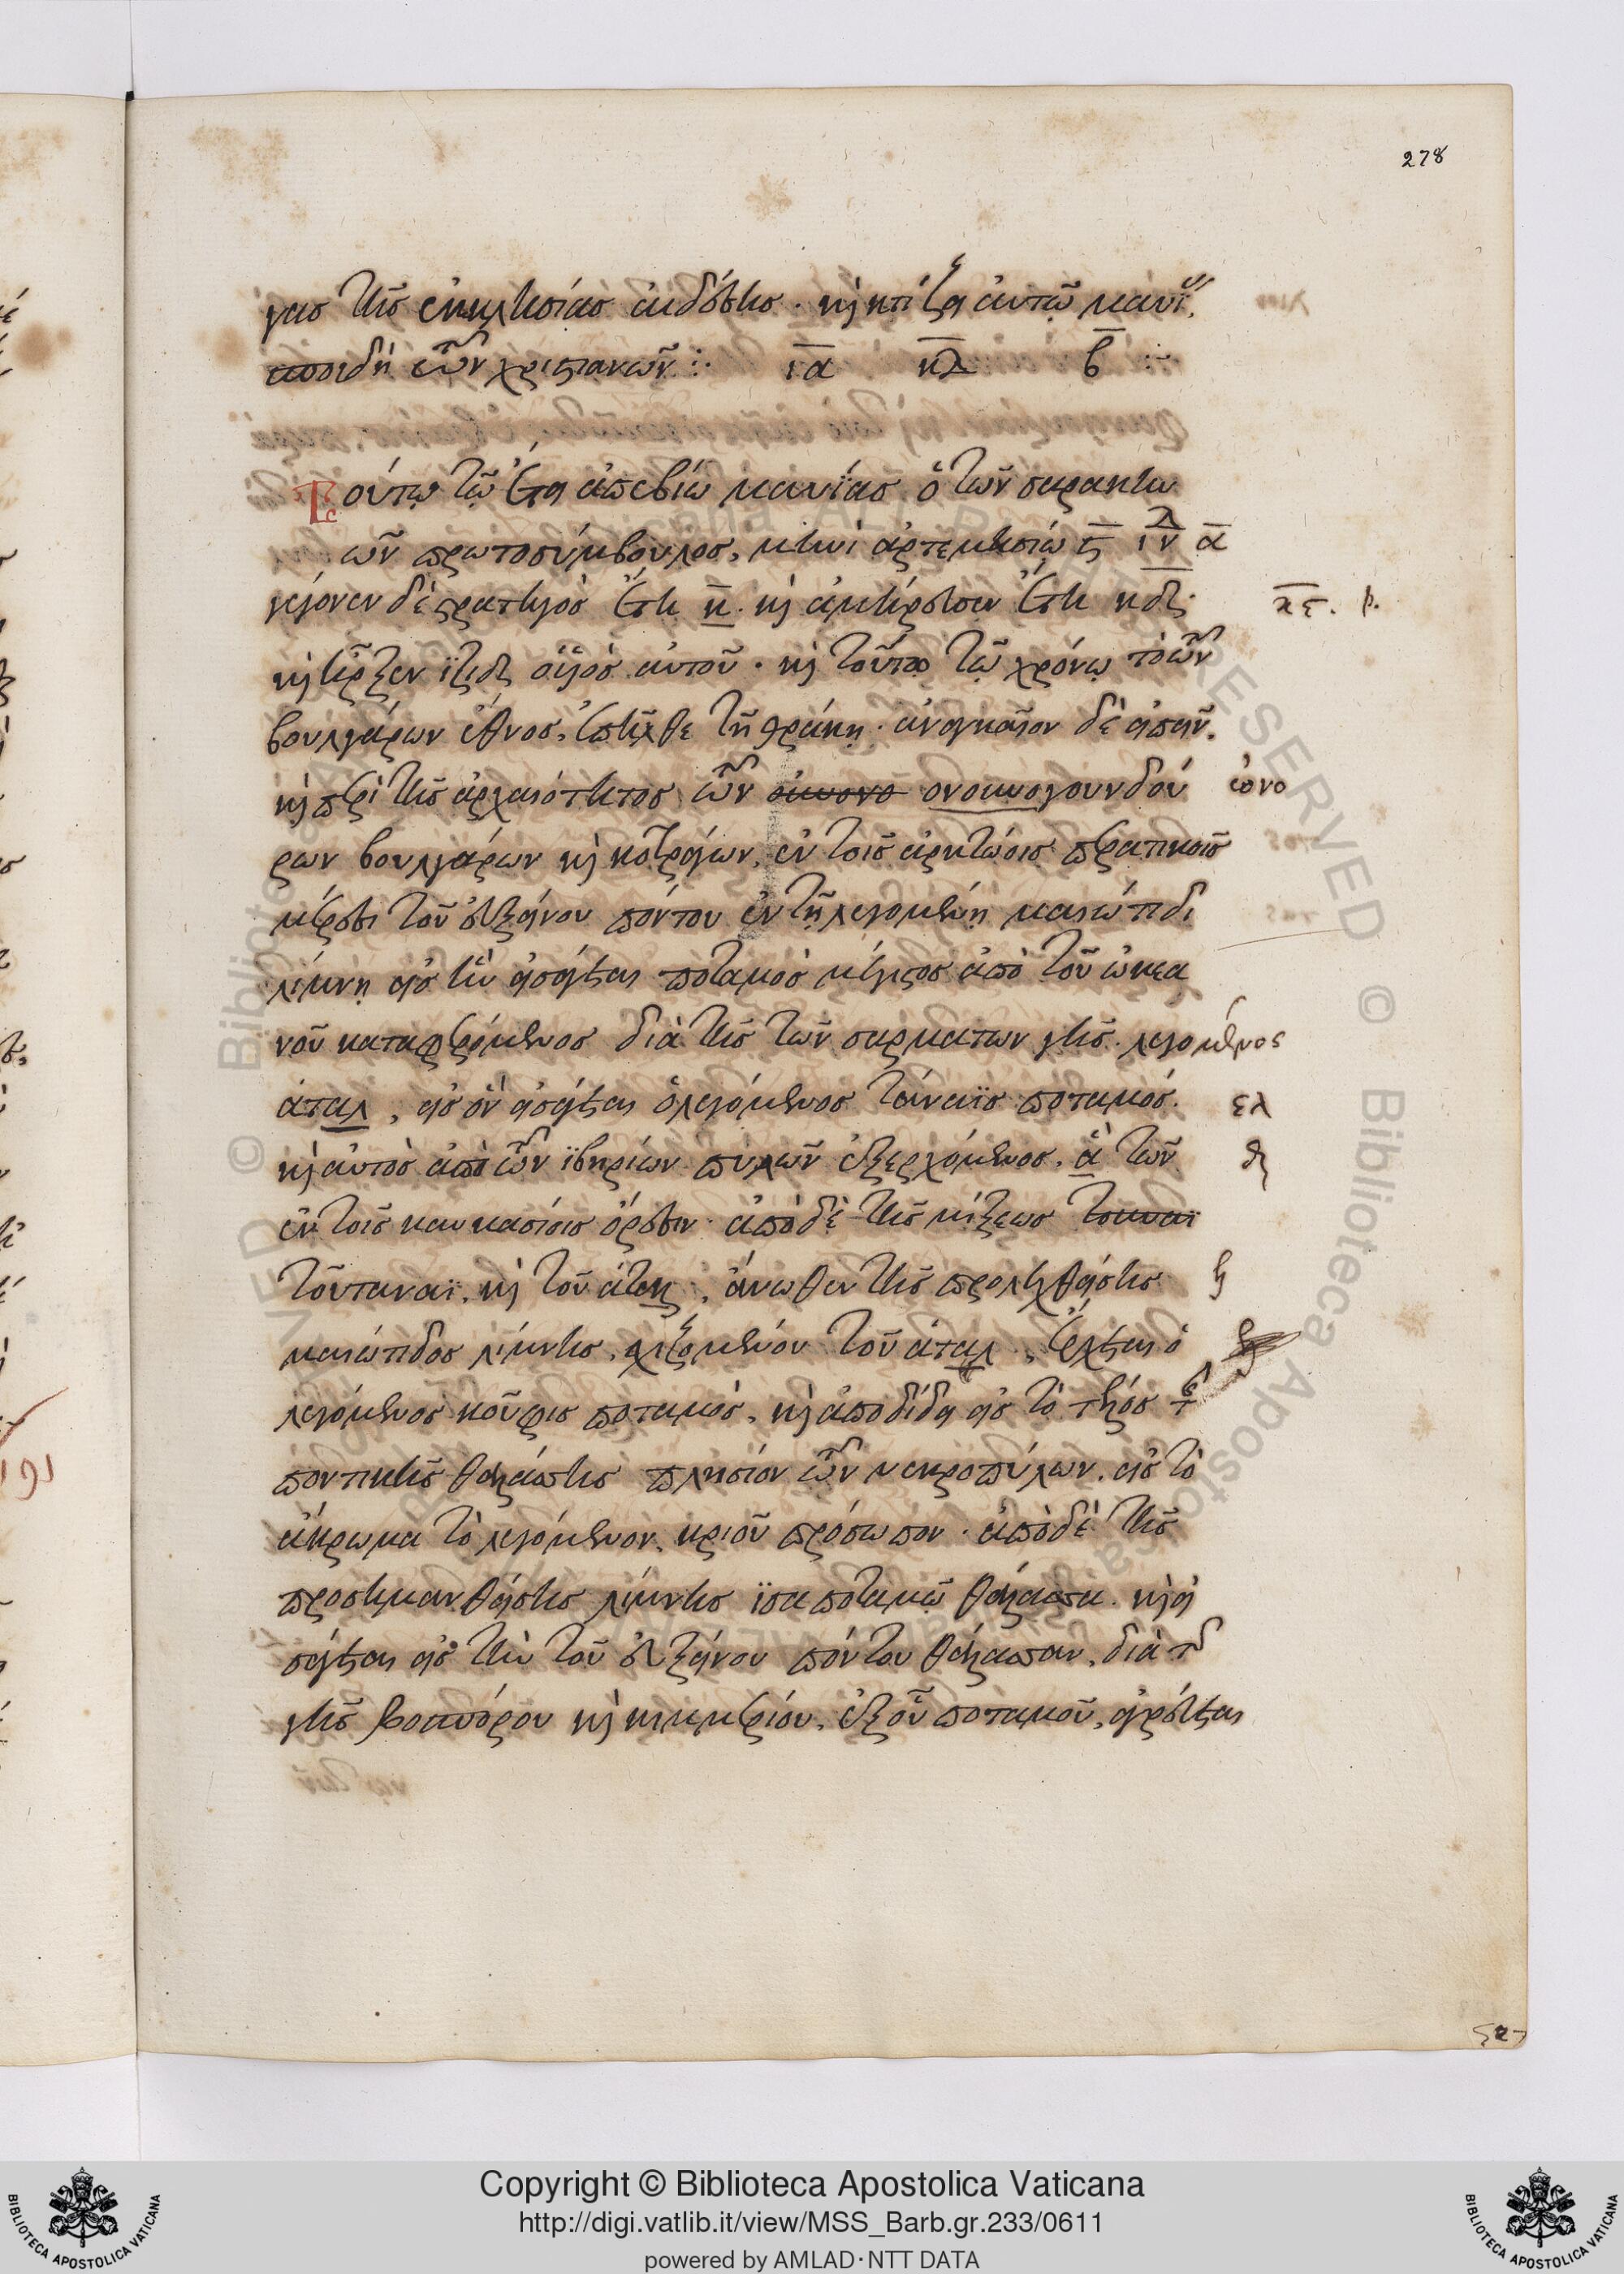 278
γας τῆς ἐκκλησίας ἐκδόσης. καὶ κτίζει αὐτῷ μαυΐ
σποιδὴ τῶν χριστιανῶν :· ια κλ β :~
Τούτῳ τῷ ἔτει ἀπεβίω μαυΐας ὁ τῶν σαρακην
ῶν πρωτοσύμβουλος, μηνὶ ἀρτεμησίῳ ς ιν^λ α
γέγονεν δὲ στρατηγὸς ἔτη κ. καὶ ἀμήρευσεν ἔτη κδ.
κε. β.
καὶ ἦρξεν ἵζιδ ὁ υἱὸς αὐτοῦ. καὶ τούτῳ τῷ χρόνῳ τὸ τῶν
βουλγάρων ἔθνος, ἐπῆλθε τῇ θράκῃ. ἀναγκαῖον δὲ εἰπεῖν,
καὶ περὶ τῆς ἀρχαιότητος τῶν ονοκνογουνδού
ὀνο
ρων βουλγάρων καὶ κοτράγων, ἐν τοῖς ἀρκτώοις περατικοῖς
μέρεσι τοῦ εὐξείνου πόντου ἐν τῇ λεγομένῃ μαιώτιδι
λίμνῃ εἰς ἣν εἰσάγεται ποταμὸς μέγιστος ἀπὸ τοῦ ὠκεα
νοῦ καταφερόμενος διὰ τῆς τῶν σαρματων γῆς. λεγομενος
ἄταλ, εἰς ὃν εἰσάγεται ὁ λεγόμενος τάναϊς ποταμός.
ελ
καὶ αὐτὸς ἀπὸ τῶν ἰβηρίων πυλῶν ἐξερχόμενος, ἃ τῶν
ἐν τοῖς καυκασίοις ὄρεσιν. ἀπὸ δὲ τῆς μίξεως
τοῦ ταναϊ, καὶ τοῦ ἄταλ, ἄνωθεν τῆς προλεχθείσης
μαιώτιδος λίμνης, σχιζομένου τοῦ ἄταλ, ἔρχεται ὁ
λεγόμενος κοῦφις ποταμὸς, καὶ ἀποδίδει εἰς τὸ τέλος τῆς
ποντικῆς θαλάσσης πλησίον τῶν νεκροπύλων, εἰς τὸ
ἄκρωμα τὸ λεγόμενον, κριοῦ πρόσωπον. ἀπὸ δὲ τῆς
προσημανθείσης λίμνης ἴσα ποταμῷ θάλασσα. καὶ εἰ
σάγεται εἰς τὴν τοῦ εὐξείνου πόντου θάλασσαν, διὰ τῆς
γῆς βοσπόρου καὶ κιμμερίου, ἐξ οὗ ποταμοῦ, ἀγρεύεται
Copyright © Biblioteca Apostolica Vaticana
http://digi.vatlib.it/view/MSS_Barb.gr.233/0611
powered by AMLAD·NTT DATA
BIBLIOTECA APOSTOLICA VATICANA
BIBLIOTECA APOSTOLICA VATICANA